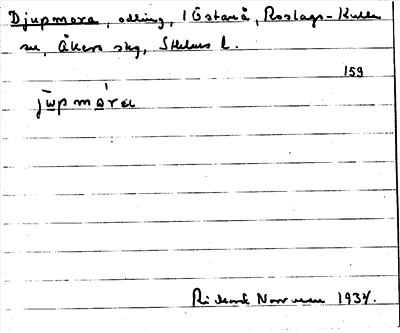 Djupmora, odling, i Östanå, Roslags-Kulla
sn, Åkers skg, Sthlms l.
159
Rickard Norrman 1934.